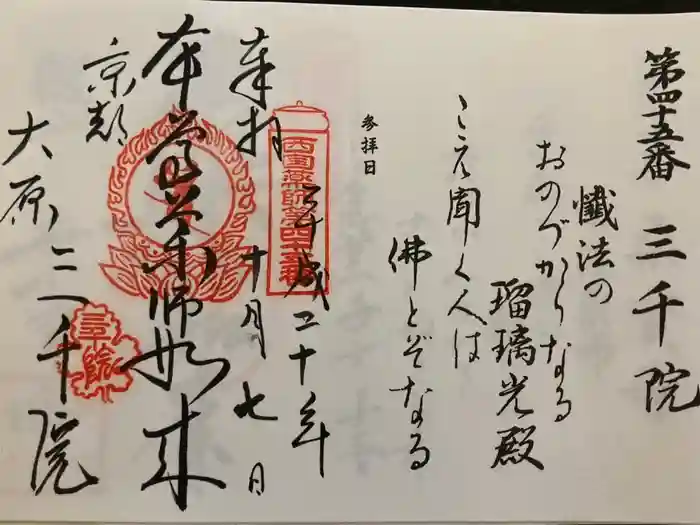 第四十五番 三千院
懺法の
おのづからなる
瑠璃光殿
こえ聞く人は
佛とぞなる
参拝日
平成二十年
十月七日
奉拝
西国薬師第四十五番
本尊薬師如来
京都
大原三千院
三千院